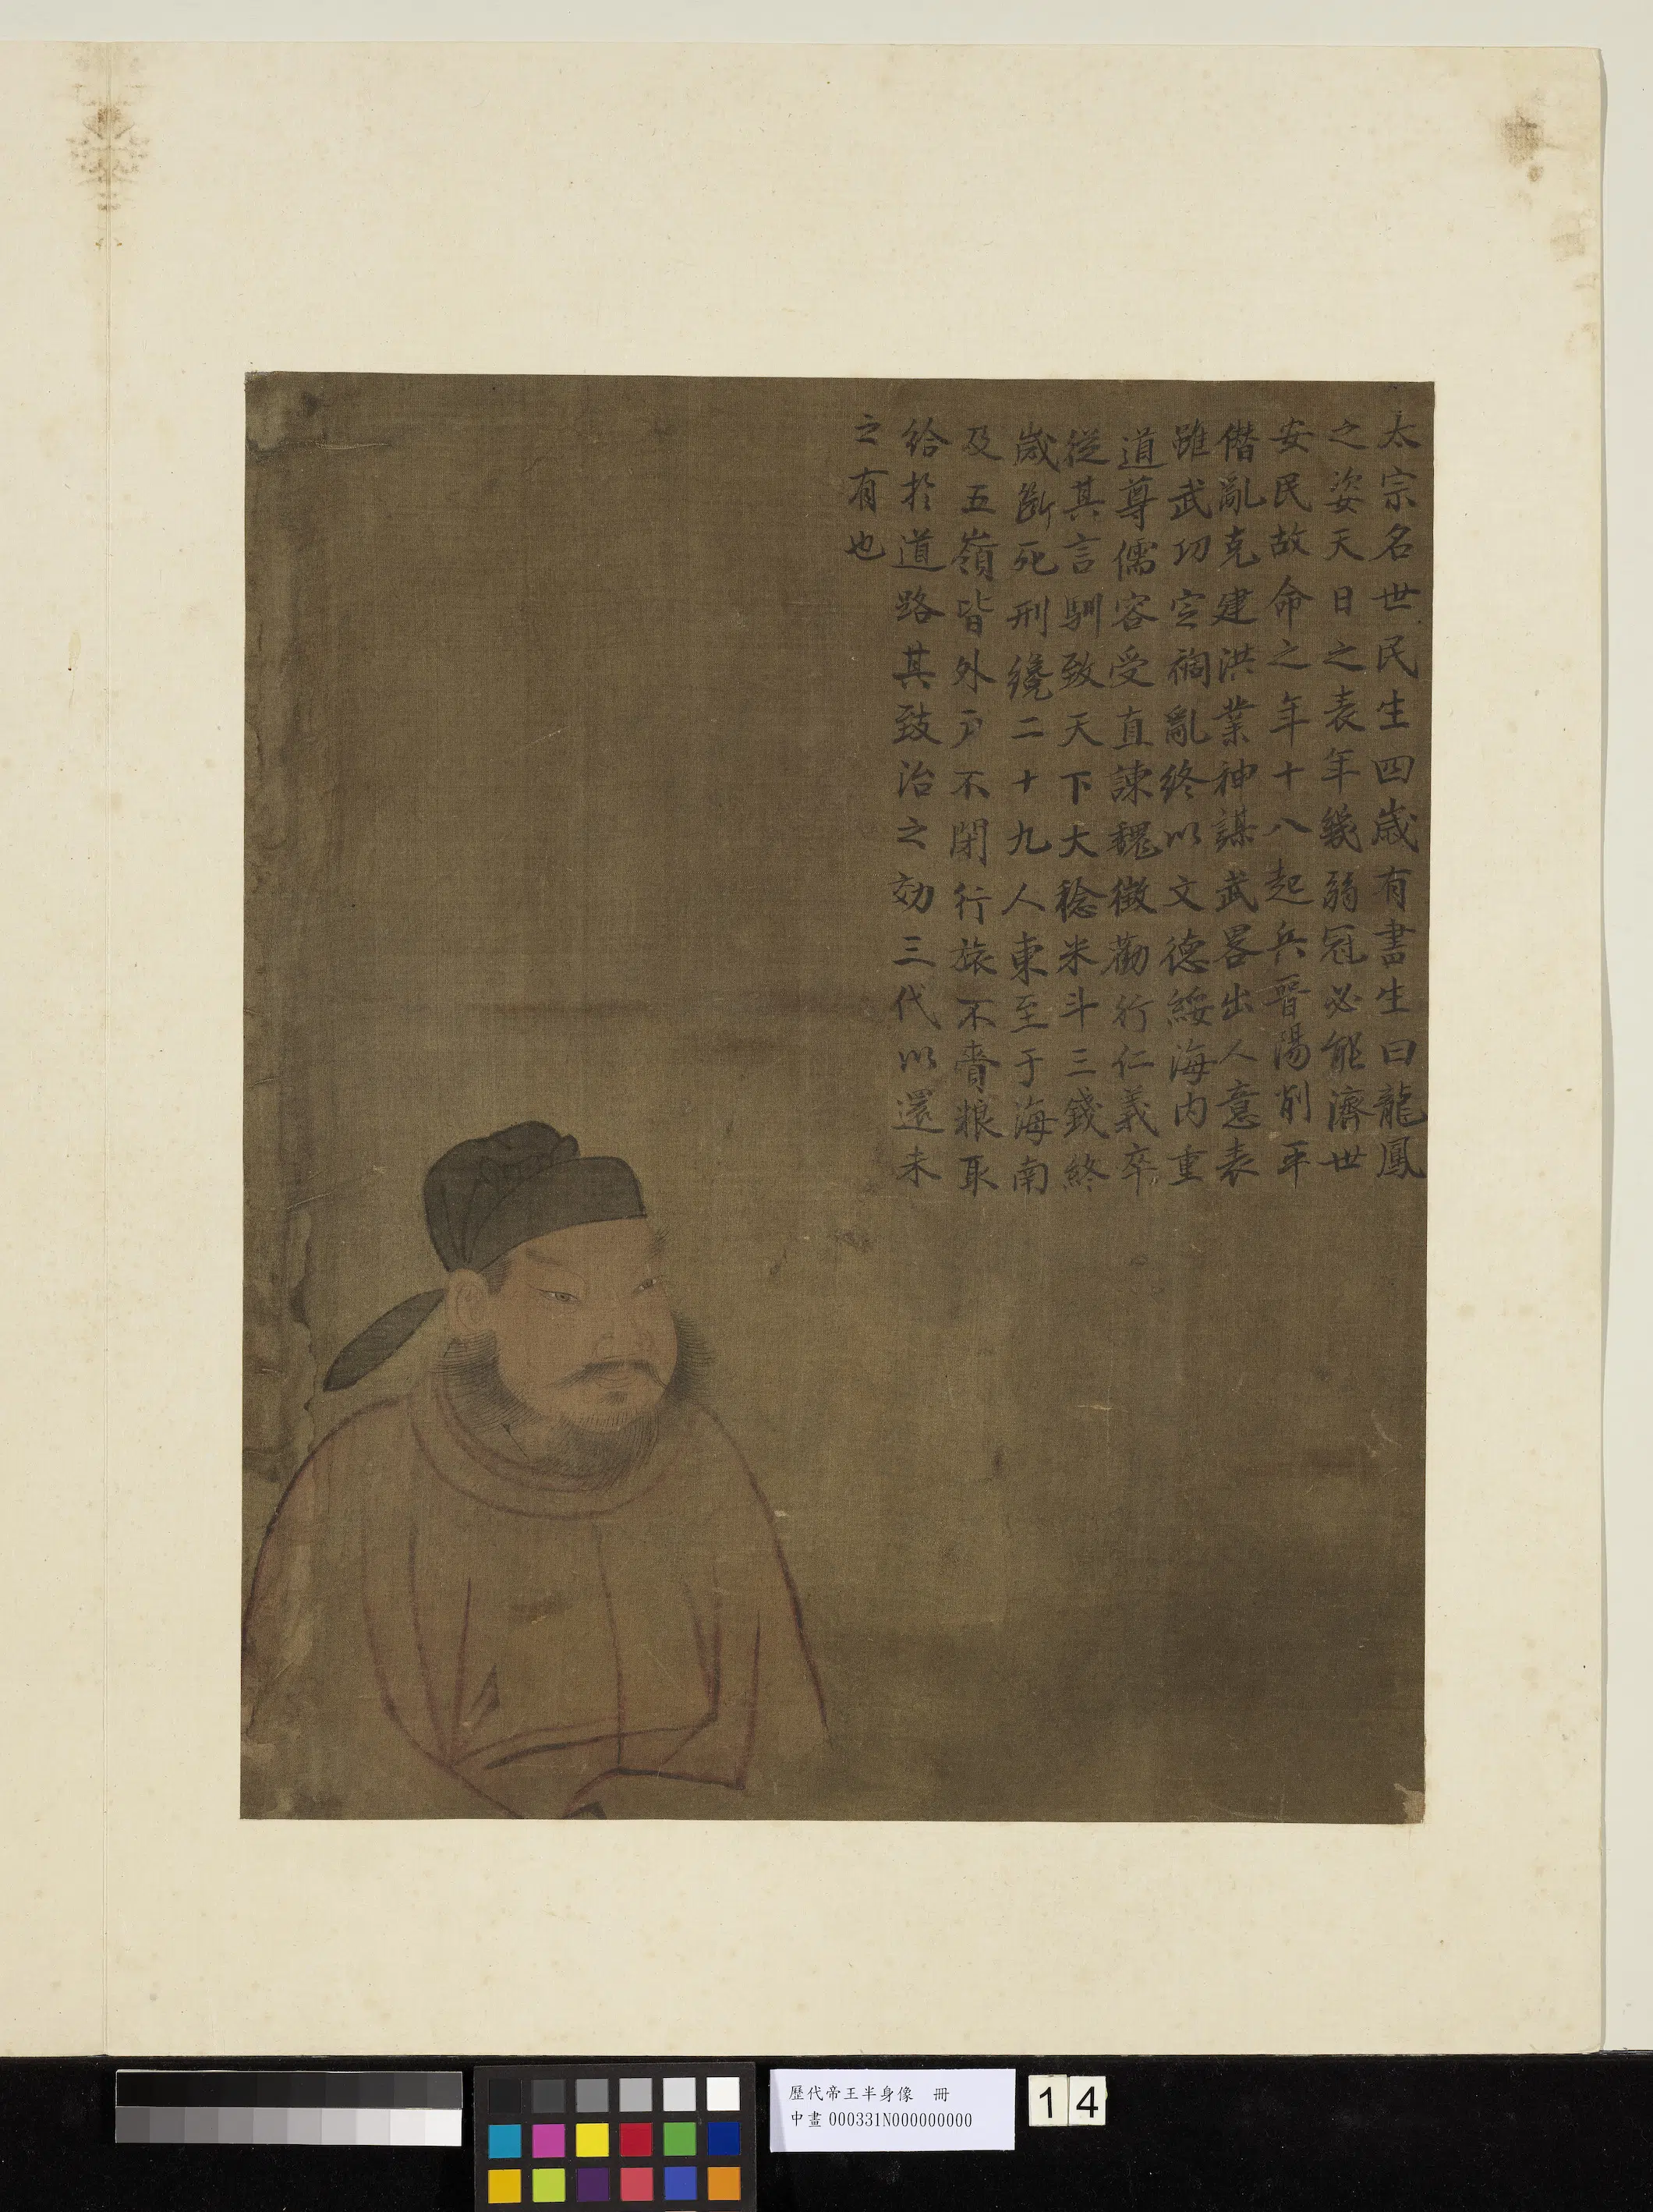 太宗名世民生四歲有書生曰龍鳳
之姿天日之表年幾弱冠必能濟世
安民故命之年十八起兵晉陽削平
僭亂克建洪業神謀武畧出人意表
雖武功定禍亂終以文德綏海內重
道尊儒容受直諫魏徵勸行仁義卒
從其言馴致天下大稔米斗三錢終
歲斷死刑纔二十九人東至于海南
及五嶺皆外戶不閉行旅不賫粮取
給於道路其致治之効三代以還未
之有也
歷代帝王半身像 冊
中畫 000331N000000000
14